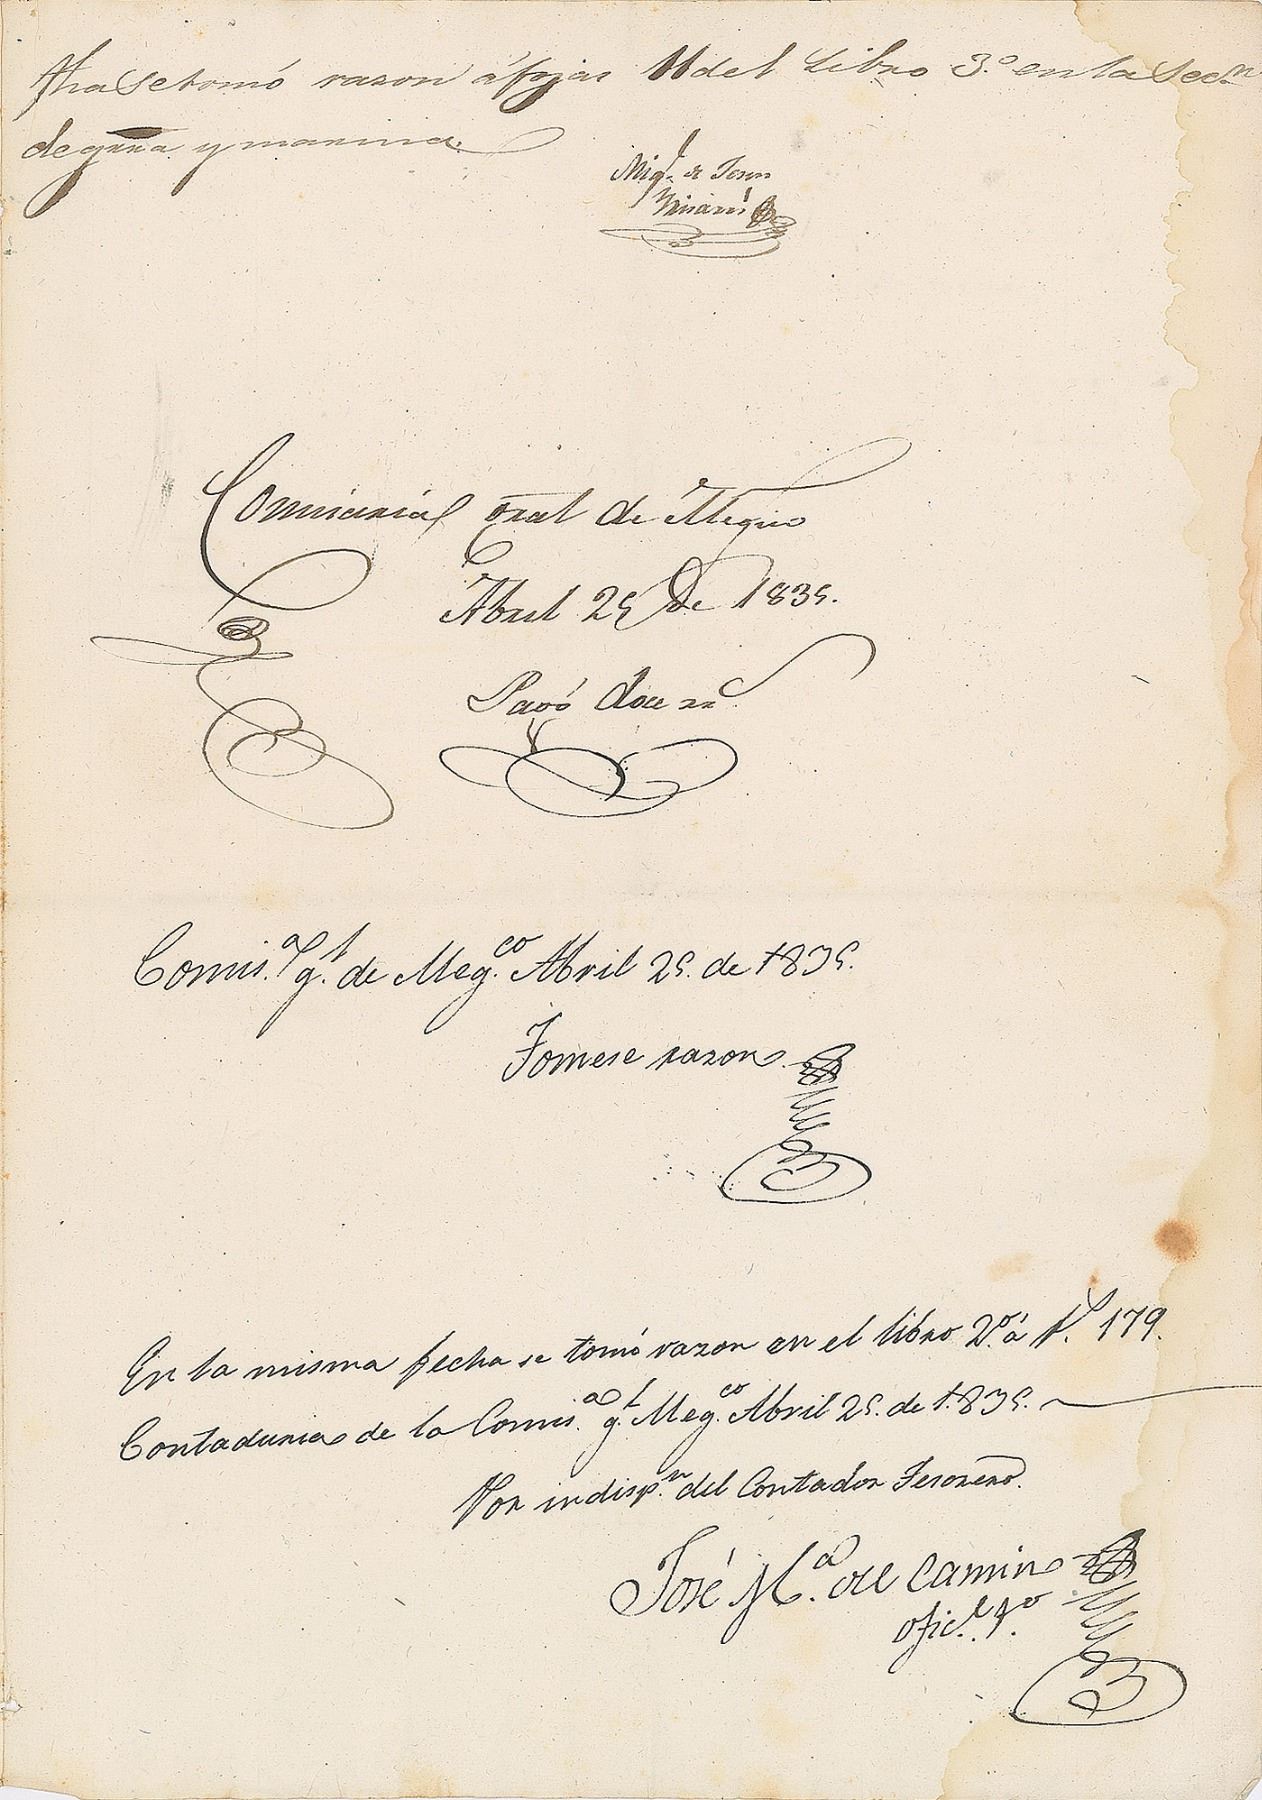 se tomó razon á fojas 11 del Libro 3.º en la Secn
de grra y marina.
Comisaria gral de Megico
Abril 25 de 1835.
Pagó doce rr.
Comis.a gl. de Meg.co Abril 25. de 1835.
Tomese razon
En la misma fecha se tomó razon en el libro 2.º á fs. 179.
Contaduria de la Comis.a gl. Meg.co Abril 25. de 1835.
Por indisp.n del Contador Tesorero.
José M.a del Camino
ofic.l 1.o